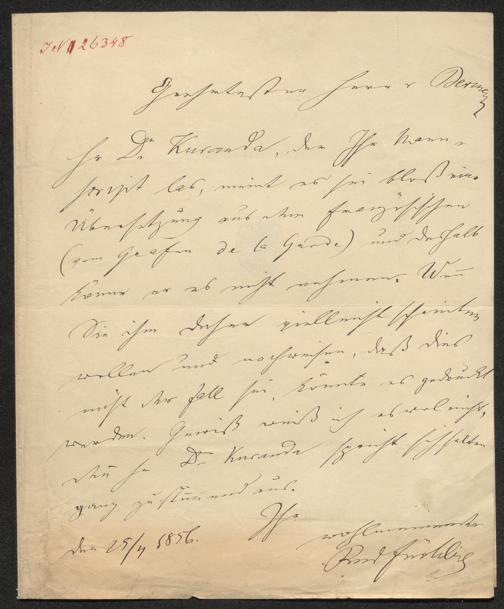 IN 26348
Geehrtester Herr v
Hr Dr. Kuranda, der Ihr Manu-
script las, meint es sei bloß eine
Übersetzung aus dem Französischen
(vom Grafen de la Garde) und deshalb
könne er es nicht nehmen. Wenn
Sie ihm daher vielleicht schreiben
wollen und nachweisen, daß dies
nicht der Fall sei, könnte es gedruckt
werden. Gewiß weiß ich es wol nicht,
denn Hr Dr. Kuranda spricht sich selten
ganz zustimmend aus.
Ihr
wohlmeinender
den 25/4 1856.